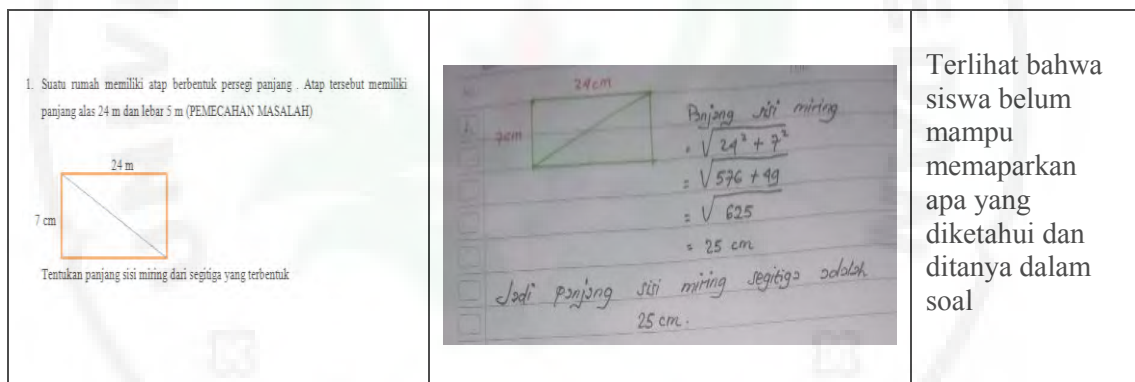 1. Suatu rumah memiliki atap berbentuk persegi panjang . Atap tersebut memiliki
panjang alas 24 m dan lebar 5 m (PEMECAHAN MASALAH)
24 m
7 cm
Tentukan panjang sisi miring dari segitiga yang terbentuk
24cm
7cm
Panjang sisi miring
= √24² + 7²
= √576 + 49
= √625
= 25 cm
Jadi panjang sisi miring segitiga adalah
25 cm.
Terlihat bahwa
siswa belum
mampu
memaparkan
apa yang
diketahui dan
ditanya dalam
soal